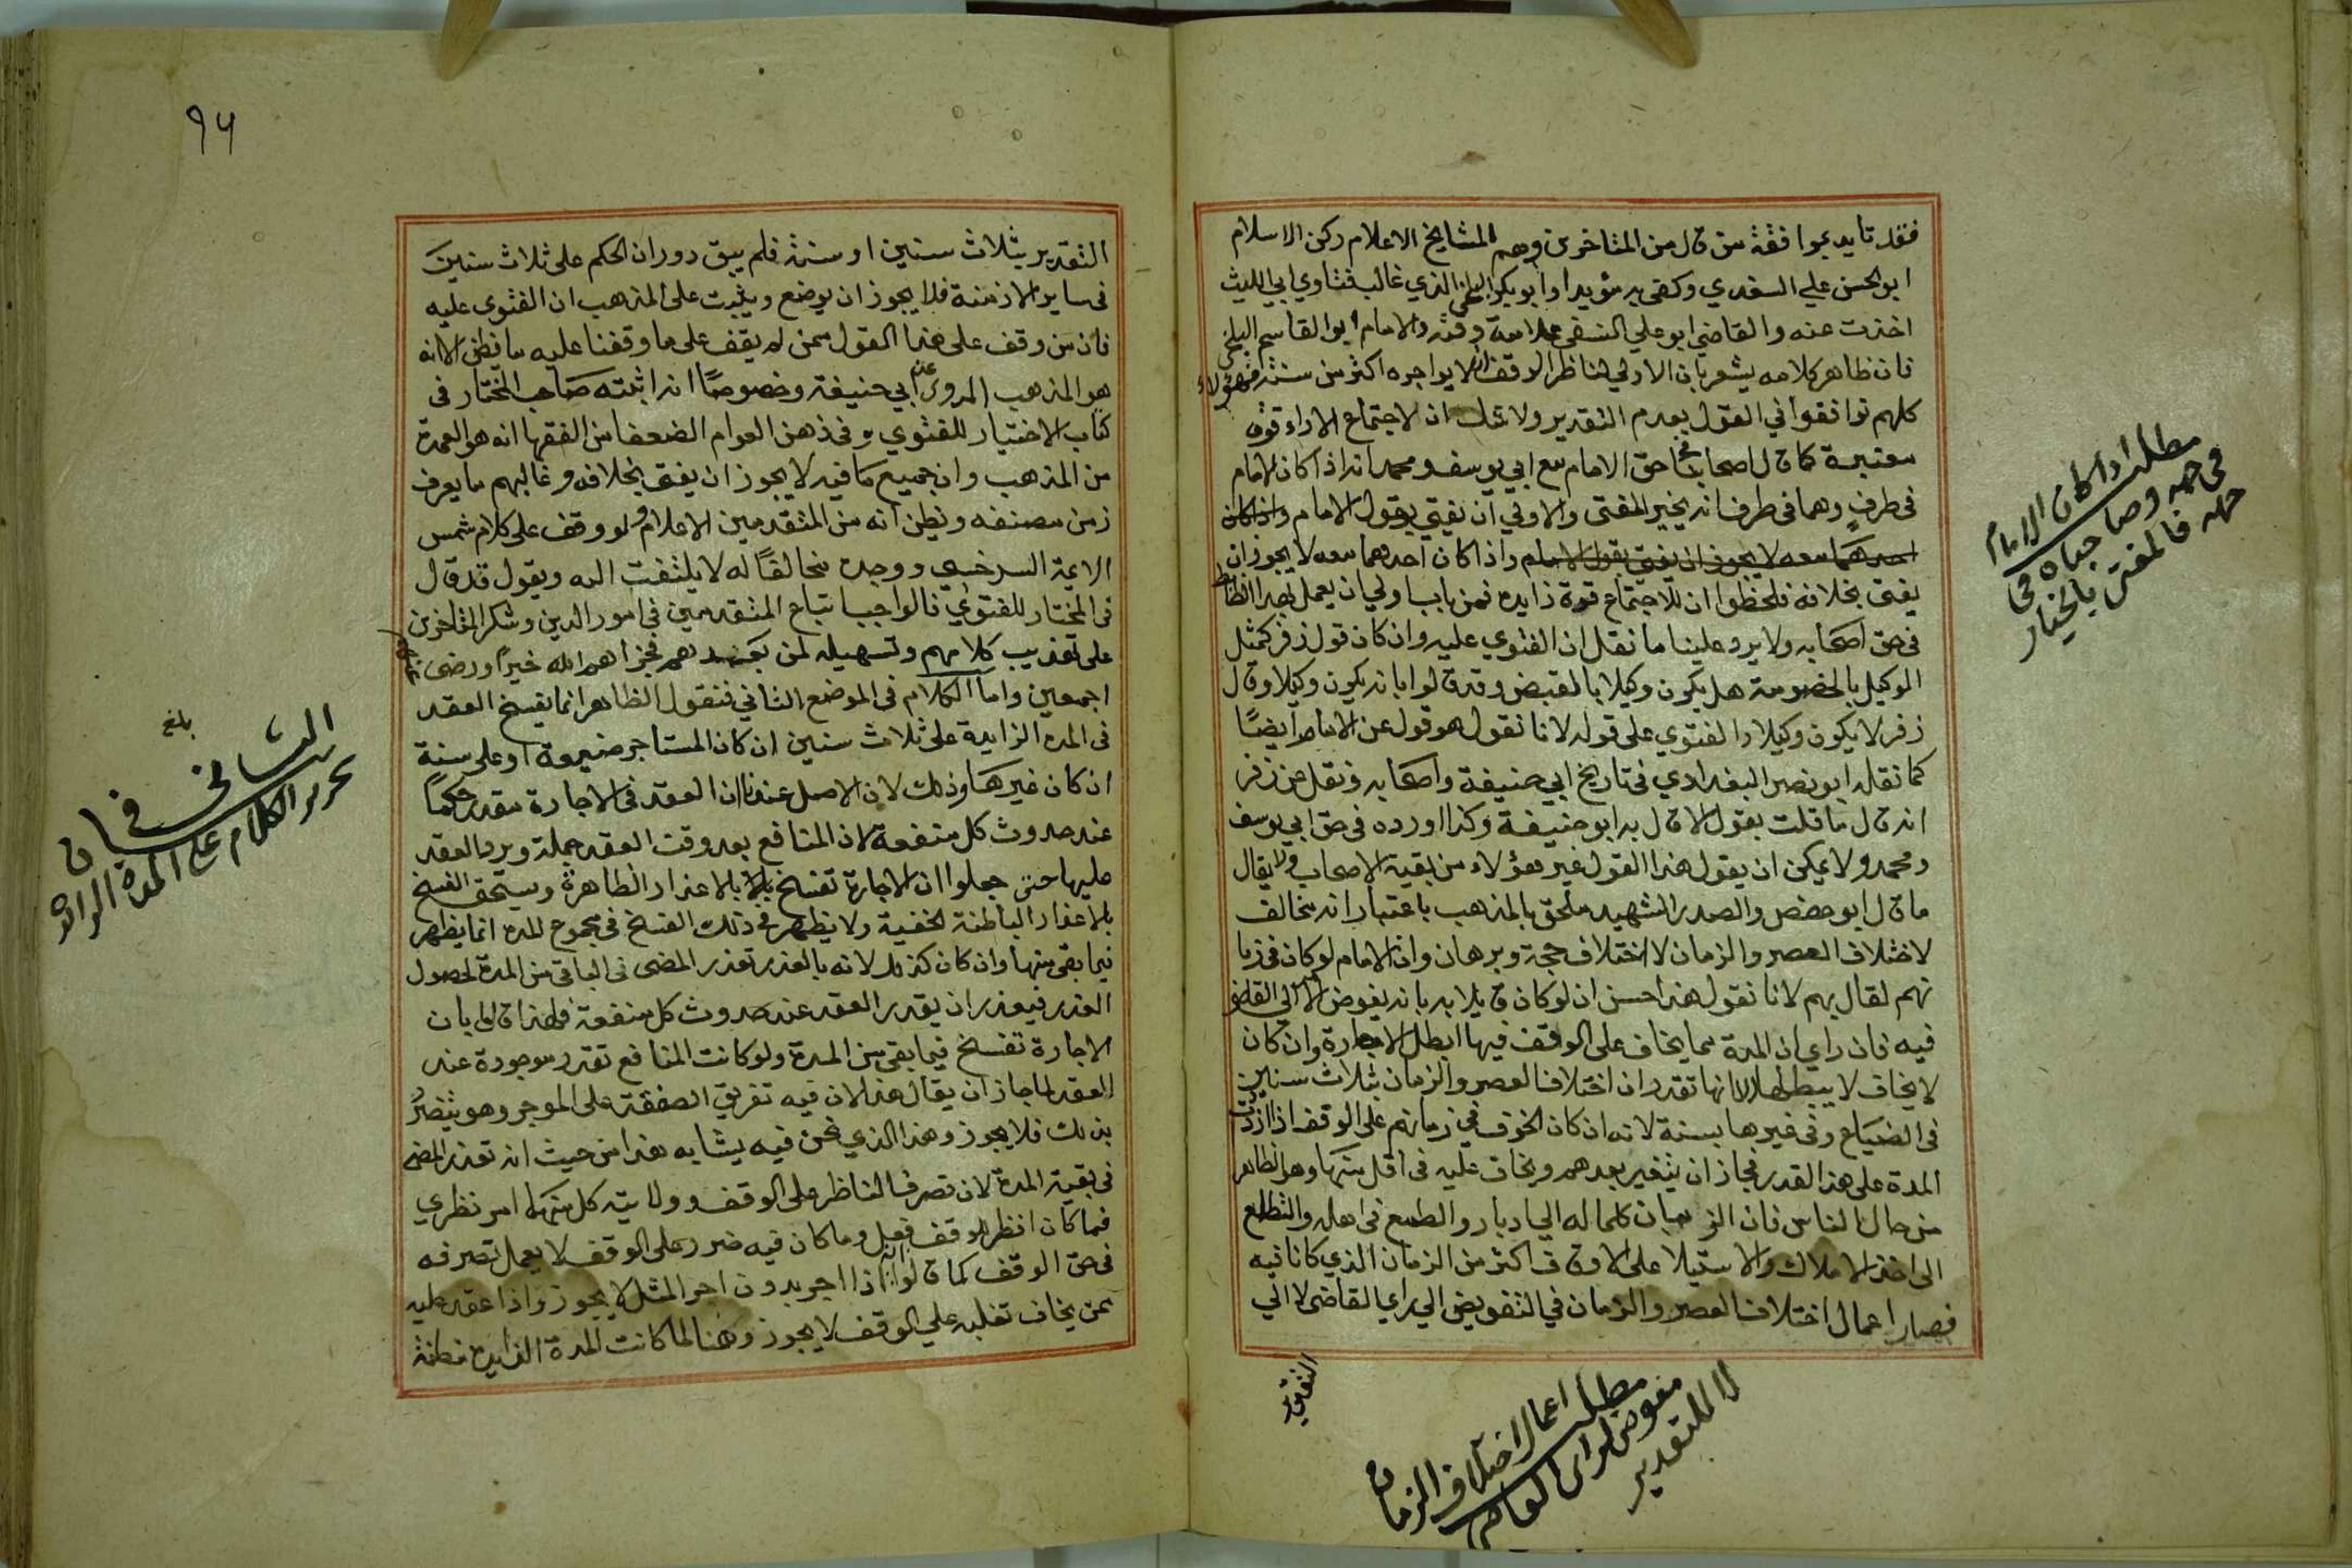 فقد تايد بموافقة من قال من المتاخرين وهم المشايخ الاعلام ركن الاسلام
ابو الحسن علي السغدي وكفى به مؤيدا وابو بكر البلخي الذي غالب فتاوي ابي الليث
اخذت عنه والقاضي ابو علي النسفي علامة وقته والامام ابو القاسم البلخي
فان ظاهر كلامه يشعر بان الاولي لناظر الوقف ان لا يواجره اكثر من سنة فهولاء
كلهم توافقوا في القول بعدم التقدير ولا شك ان لاجتماع الاراء قوة
معتبرة كما قال اصحابنا في حق الامام مع ابي يوسف ومحمد انه اذا كان الامام
في طرف وهما في طرف انه يخير المفتى والاولي ان يفتي بقول الامام واذا كان
احدهما معه لا يجوز ان يفتى بقول الامام واذا كان احدهما معه لا يجوز ان
يفتى بخلافه فلحظوا ان للاجتماع قوة زايدة فمن باب اولي ان يعمل بهذا اللحاظ
في حق اصحابه ولا يرد علينا ما نقل ان الفتوي عليه وان كان قول زفر كمثل
الوكيل بالخصومة هل يكون وكيلا بالقبض وقد قالوا بانه يكون وكيلا وقال
زفر لا يكون وكيلا والفتوي على قوله لانا نقول هو قول عن الامام ايضًا
كما نقله ابو نصر البغدادي في تاريخ ابي حنيفة واصحابه ونقل عن زفر
انه قال ما قلت بقول الا قال به ابو حنيفة وكذا اورده في حق ابي يوسف
ومحمد ولا يمكن ان يقول هذا القول غير هؤلاء من بقية الاصحاب ولا يقال
ما قال ابو حفص والصدر الشهيد ملحق بالمذهب باعتبار انه مخالف
لاختلاف العصر والزمان لا اختلاف حجة وبرهان وان الامام لو كان في زما
نهم لقال بهم لانا نقول هذا حسن ان لو كان قايلا به بانه يفوض الامر الي القاضي
فيه فان راي ان المدة مما يخاف على الوقف فيها ابطل الاجارة وان كان
لا يخاف لا يبطلها لا انها تقدر ان اختلاف العصر والزمان بثلاث سنين
في الضياع وفي غيرها بسنة لانه ان كان الخوف في زمانهم على الوقف اذا زادت
المدة على هذا القدر فجاز ان يتغير بعدهم ويخاف عليه في اقل منها وهو الظاهر
من حال الناس فان الزمان كلما له الي ادبار والطمع في اهله والتطلع
الى اخذ الاملاك والاستيلا على الاوقاف اكثر من الزمان الذي كانا فيه
فصار اعمال اختلاف العصر والزمان في التفويض الي راي القاضى لا الي
التقدير
مطلب اذا كان الامام
في جهة وصاحباه في
جهة فالمفتى بالخيار
مطلب اعمال اختلاف الزمان
مفوض لراى القاضى
لا للتقدير
٩٦
التقدير بثلاث سنين او سنة فلم يبق دوران الحكم على ثلاث سنين
في ساير الازمنة فلا يجوز ان يوضع ويثبت على المذهب ان الفتوى عليه
فان من وقف على هذا القول ممن لم يقف على ما وقفنا عليه ما يظن الا انه
هو المذهب المروي عن ابي حنيفة وخصوصًا انه اثبته صاحب المختار في
كتاب الاختيار للفتوي وفي ذهن العوام الضعفا من الفقها انه هو العمدة
من المذهب وان جميع ما فيه لا يجوز ان يفتى بخلافه وغالبهم ما يعرف
زمن مصنفه ويظن انه من المتقدمين الاعلام ولو وقف على كلام شمس
الايمة السرخسي ووجده مخالفًا له لا يلتفت اليه ويقول قد قال
في المختار للفتوي فالواجب اتباع المتقدمين في امور الدين وشكر المتاخرين
على تهذيب كلامهم وتسهيله لمن بعدهم فجزاهم الله خيرًا ورضى عنهم
اجمعين واما الكلام في الموضع الثاني فنقول الظاهر انما يفسخ العقد
في المدة الزايدة على ثلاث سنين ان كان المستاجر ضيعة او على سنة
ان كان غيرها وذلك لان الاصل عندنا ان العقد في الاجارة مقدر حكمًا
عند حدوث كل منفعة لان المنافع بعد وقت العقد جملة ويرد العقد
عليها حتى جعلوا ان الاجارة تفسخ بالاعذار الظاهرة ويستحق الفسخ
بالاعذار الباطنة الخفية ولا يظهر في ذلك الفسخ في مجموع المدة انما يظهر
فيما بقى منها وان كان كذلك لانه بالعذر تعذر المضى في الباقي من المدة لحصول
العذر فيعذر ان يقدر العقد عند حدوث كل منفعة فلهذا قالوا بان
الاجارة تفسخ فيما بقى من المدة ولو كانت المنافع تقدر موجودة عند
العقد لما جاز ان يقال هذا لان فيه تفريق الصفقة على الموجر وهو يتضرر
بذلك فلا يجوز وهذا الذي نحن فيه يشابه هذا من حيث انه تعذر المضى
في بقية المدة لان تصرف الناظر على الوقف وولايته كل منهما امر نظري
فما كان انظر للوقف فعل وما كان فيه ضرر على الوقف لا يعمل تصرفه
في حق الوقف كما قالوا انه اذا اجر بدون اجر المثل لا يجوز واذا عقد عليه
ممن يخاف تغلبه علي الوقف لا يجوز وهنا لما كانت المدة الزايدة مظنة
بلغ
تحرير الكلام على المدة الزائدة